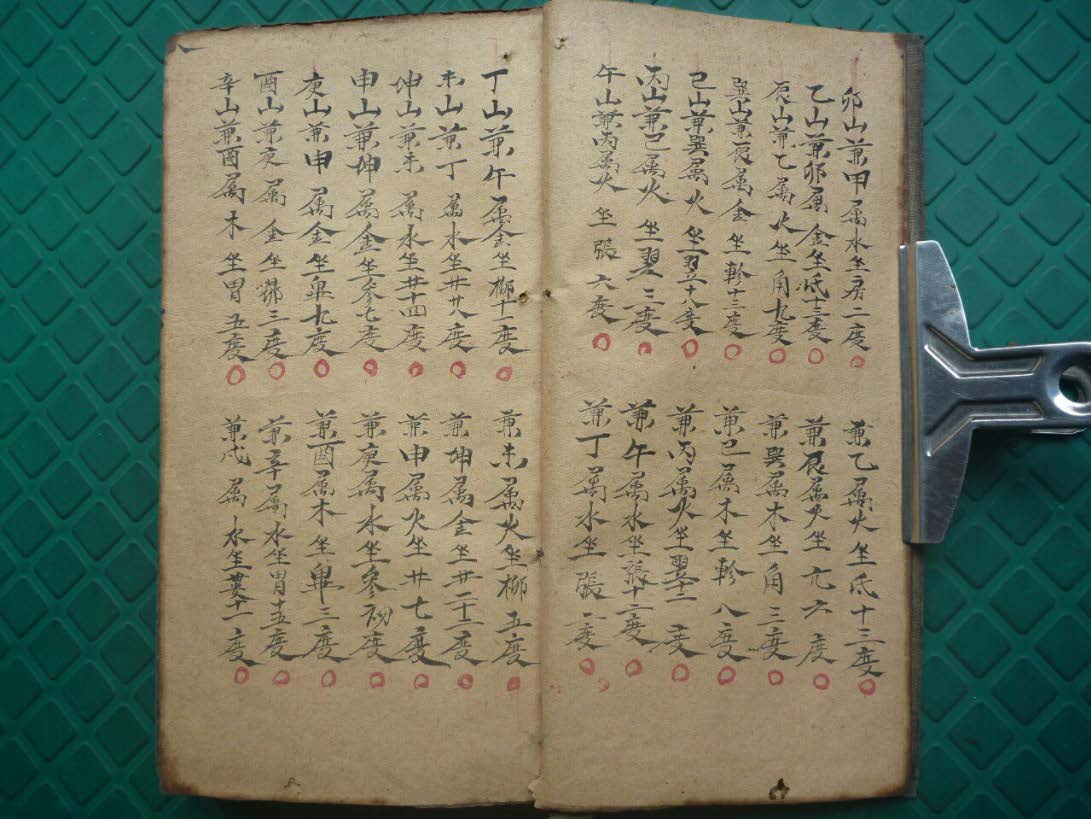 卯山兼甲属水坐房二度
兼乙属火坐氐十三度
乙山兼卯属金坐氐十三度
兼辰属火坐亢六度
辰山兼乙属火坐角九度
兼巽属木坐角三度
巽山兼辰属金坐軫十三度
兼巳属木坐軫八度
巳山兼巽属火坐翌十八度
兼丙属火坐翌十一度
丙山兼巳属火坐翌三度
兼午属水坐張十二度
午山兼丙属火坐張六度
兼丁属水坐張一度
丁山兼午属金坐柳十一度
兼未属火坐柳五度
未山兼丁属水坐井廿八度
兼坤属金坐井二十二度
坤山兼未属水坐井十四度
兼申属火坐井七度
申山兼坤属金坐参七度
兼庚属水坐參初度
庚山兼申属金坐畢九度
兼酉属木坐畢三度
酉山兼庚属金坐昴三度
兼辛属水坐胃十五度
辛山兼酉属木坐胃五度
兼戌属水坐婁十一度